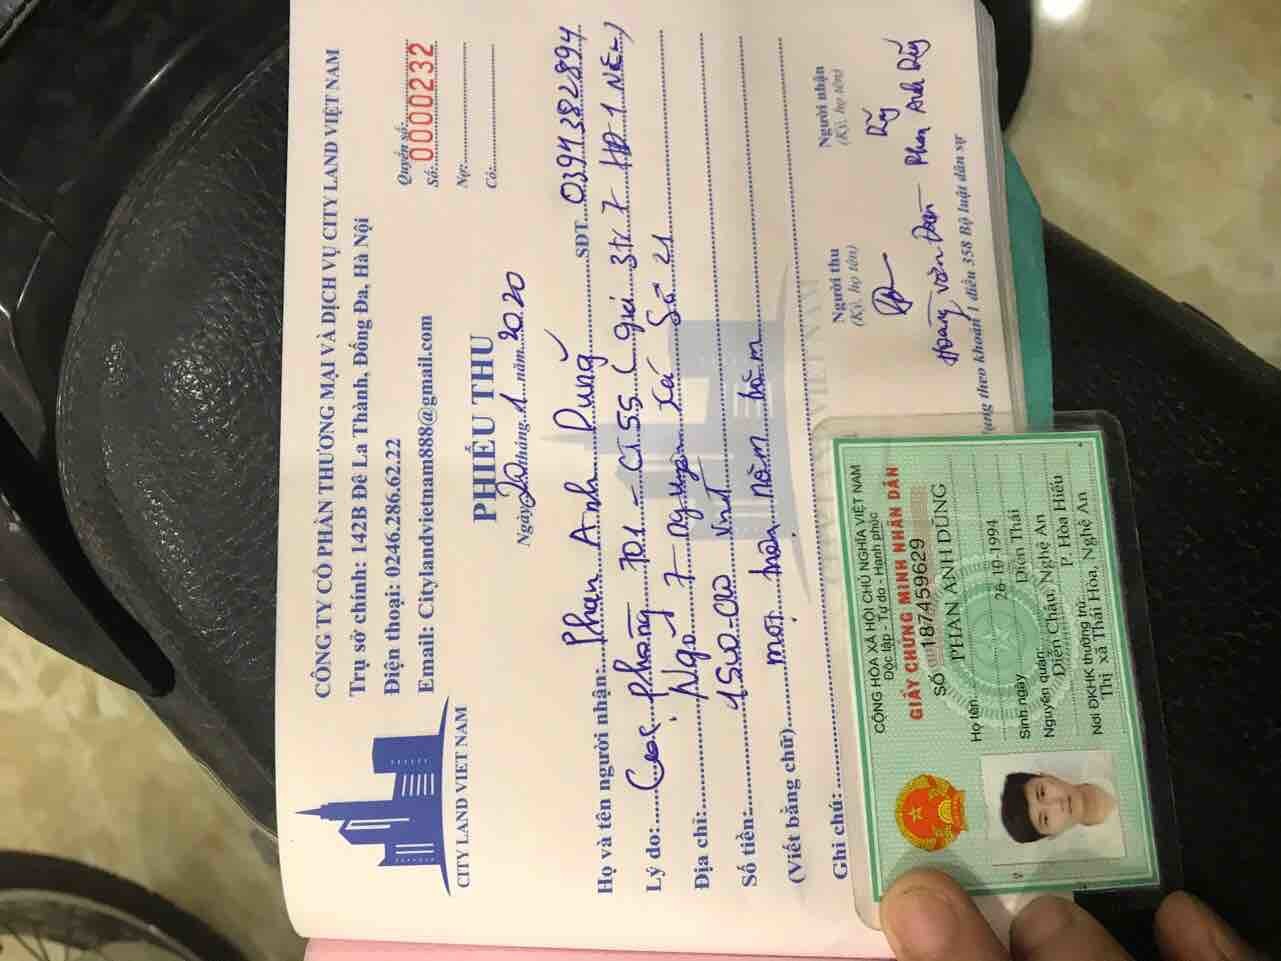 CÔNG TY CỔ PHẦN THƯƠNG MẠI VÀ DỊCH VỤ CITY LAND VIỆT NAM
Trụ sở chính: 142B Đê La Thành, Đống Đa, Hà Nội
Điện thoại: 0246.286.62.22
Email: Citylandvietnam888@gmail.com
CITY LAND VIET NAM
Quyển số:
Số: 0000232
Nợ:
Có:
PHIẾU THU
Ngày 20 tháng 1 năm 2020
Họ và tên người nhận: Phan Anh Dũng SĐT 0394382894
Lý do: Cọc phòng 701 - C1.S.S. ( giá 3tr7 HĐ 1 NĂM)
Địa chỉ: Ngõ 7 Nguyễn Xá Số 21
Số tiền: 1.500.000 VNĐ
(Viết bằng chữ) một triệu năm trăm
Ghi chú:
Người thu
(Ký, họ tên)
Hoàng Văn
Người nhận
(Ký, họ tên)
Dũng
Phan Anh Dũng
dụng theo khoản 1 điều 358 Bộ luật dân sự
CỘNG HÒA XÃ HỘI CHỦ NGHĨA VIỆT NAM
Độc lập - Tự do - Hạnh phúc
GIẤY CHỨNG MINH NHÂN DÂN
SỐ 187459629
Họ tên: PHAN ANH DŨNG
Sinh ngày 26-10-1994
Nguyên quán: Diễn Thái
Diễn Châu, Nghệ An
Nơi ĐKHK thường trú: P. Hòa Hiếu
Thị xã Thái Hòa, Nghệ An